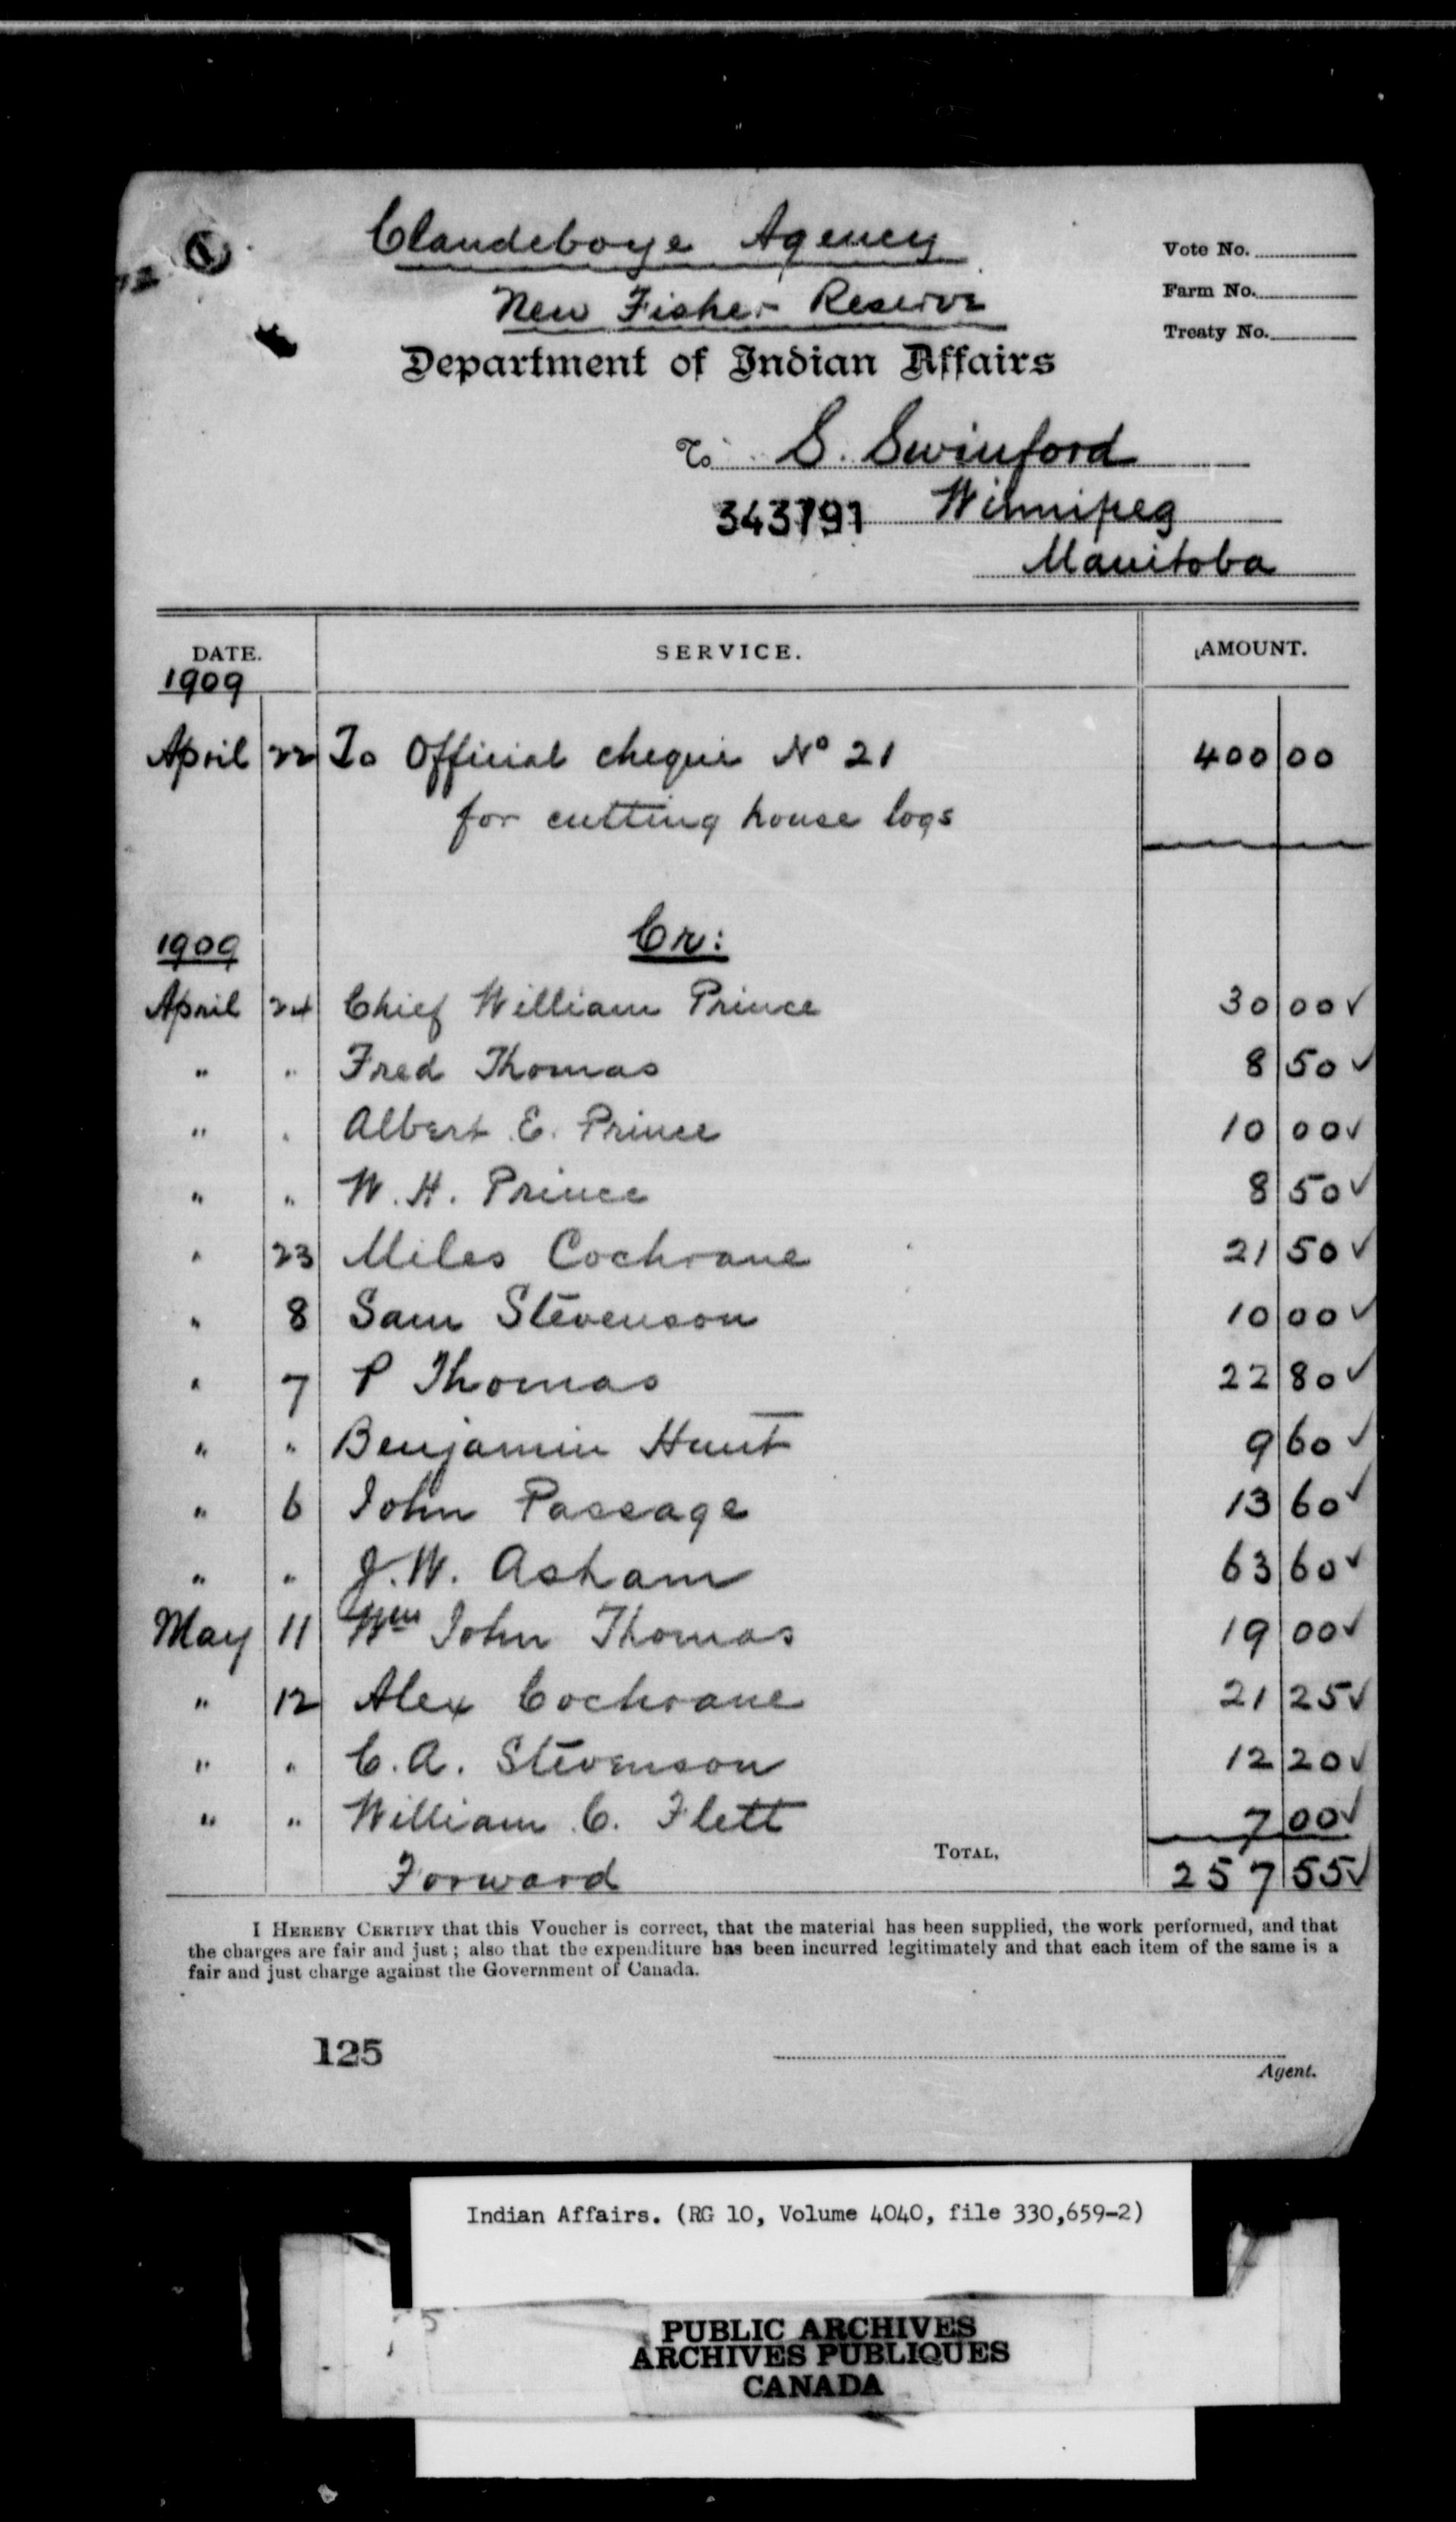 Clandeboye Agency
New Fisher Reserve
Vote No.
Farm No.
Treaty No.
Department of Indian Affairs
To S. Swinford
343791 Winnipeg
Manitoba
DATE. SERVICE. AMOUNT.
1909
April 22 To Official cheque No 21 400 00
for cutting house logs
1909 Cr:
April 24 Chief William Prince 30 00 ✓
" " Fred Thomas 8 50 ✓
" " Albert E. Prince 10 00 ✓
" " W. H. Prince 8 50 ✓
" 23 Miles Cochrane 21 50 ✓
" 8 Sam Stevenson 10 00 ✓
" 7 P Thomas 22 80 ✓
" " Benjamin Hunt 9 60 ✓
" 6 John Passage 13 60 ✓
" " J. W. Asham 63 60 ✓
May 11 Wm John Thomas 19 00 ✓
" 12 Alex Cochrane 21 25 ✓
" " C. A. Stevenson 12 20 ✓
" " William C. Flett 7 00 ✓
Forward TOTAL, 257 55 ✓
I HEREBY CERTIFY that this Voucher is correct, that the material has been supplied, the work performed, and that
the charges are fair and just; also that the expenditure has been incurred legitimately and that each item of the same is a
fair and just charge against the Government of Canada.
125
Agent.
Indian Affairs. (RG 10, Volume 4040, file 330,659-2)
PUBLIC ARCHIVES
ARCHIVES PUBLIQUES
CANADA